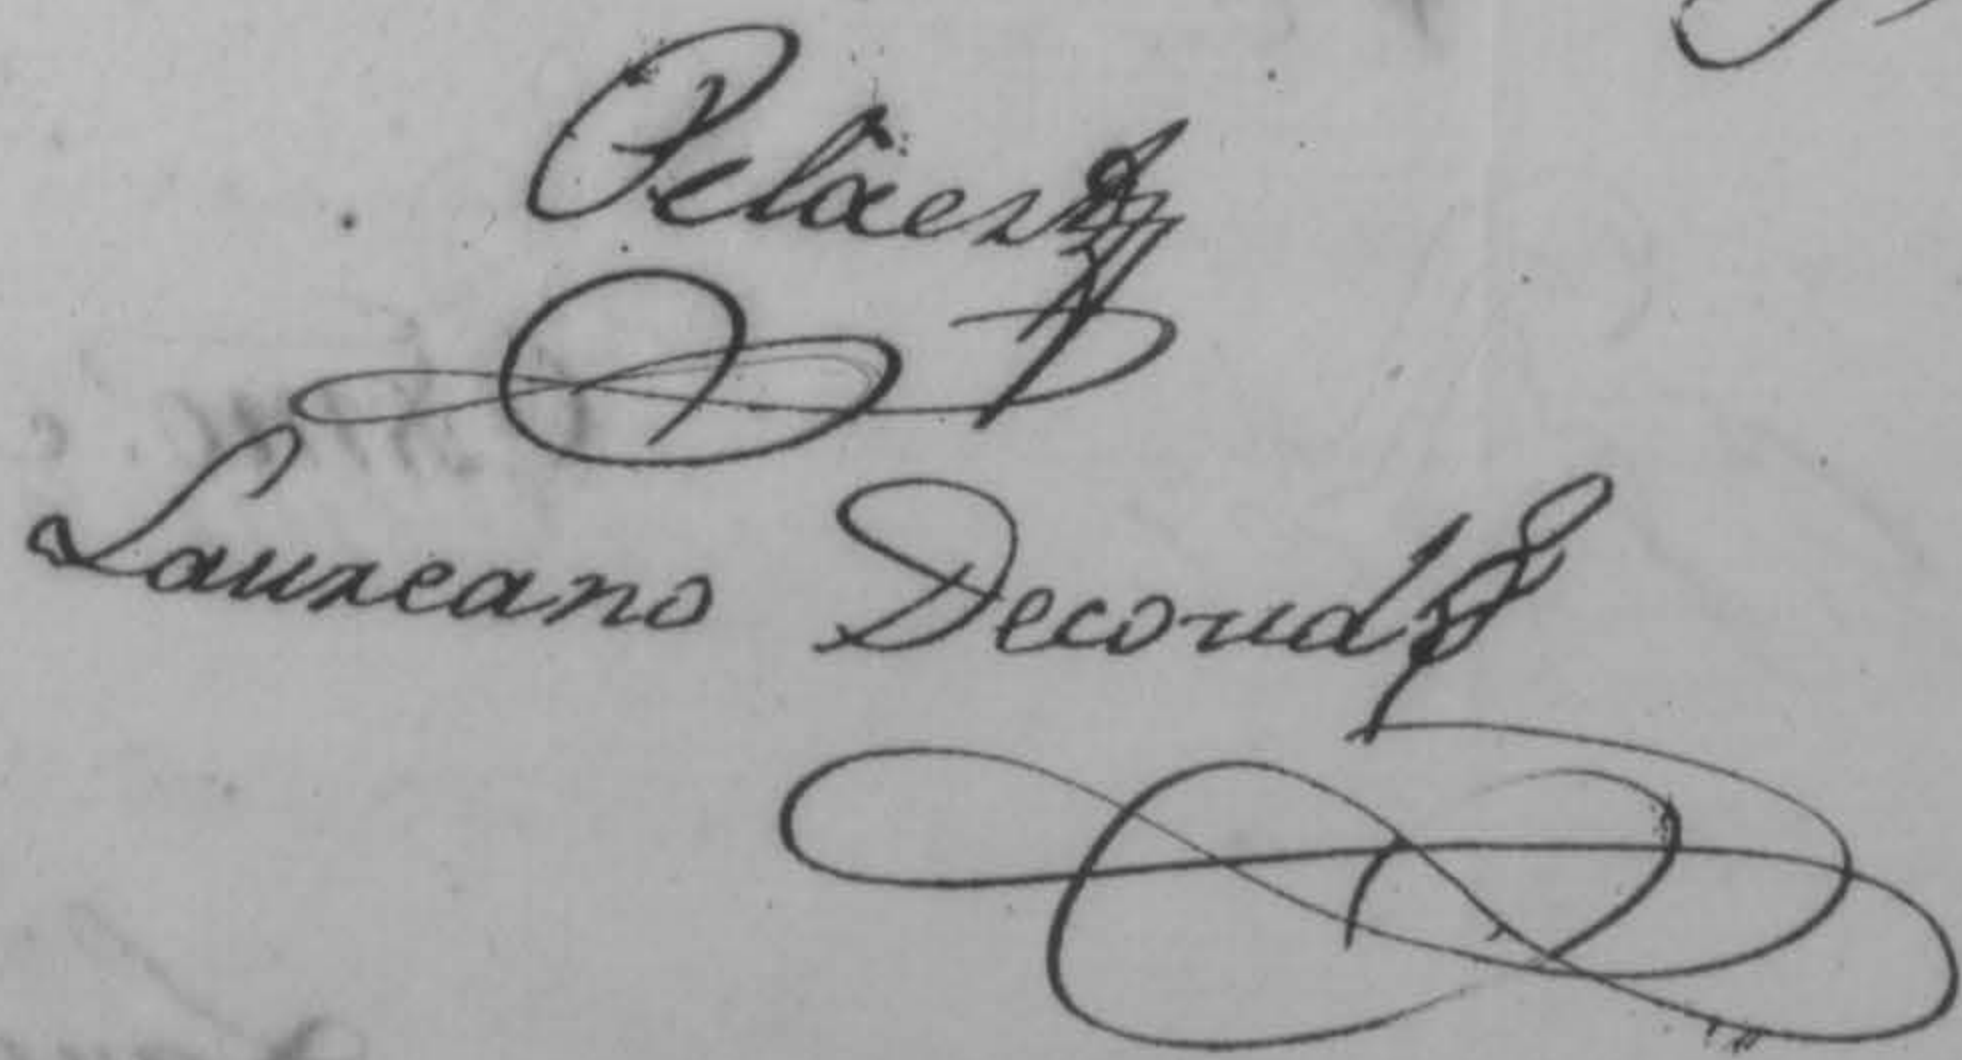 Pelaez
Laureano Decoud